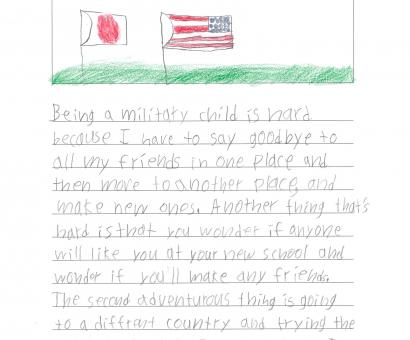 Being a military child is hard
because I have to say goodbye to
all my friends in one place and
then move to another place, and
make new ones. Another thing that's
hard is that you wonder if anyone
will like you at your new school and
wonder if you'll make any friends.
The second adventurous thing is going
to a diffrant country and trying the